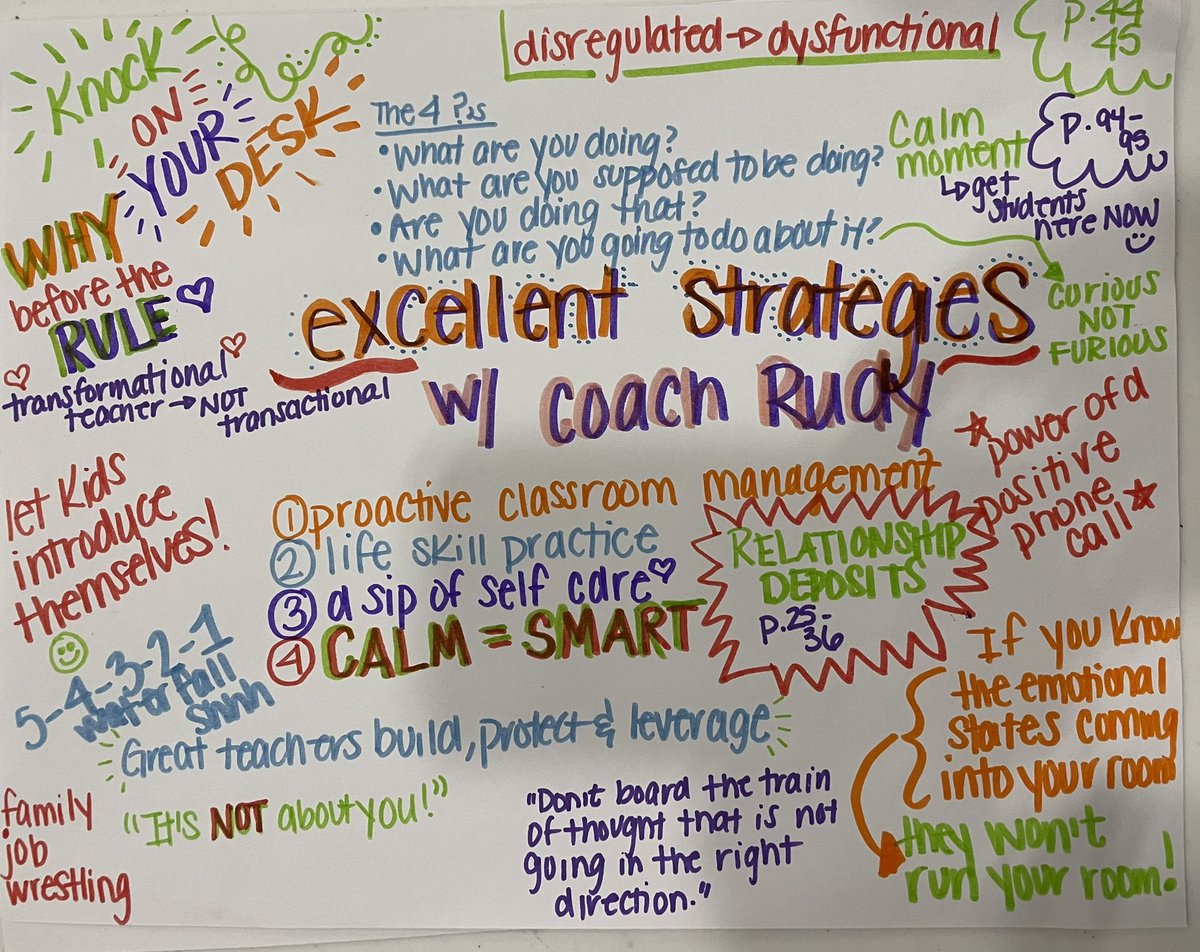 Knock
ON
YOUR
DESK
disregulated → dysfunctional
p.44
45
The 4 ?s
• What are you doing?
• What are you supposed to be doing?
• Are you doing that?
• What are you going to do about it?
Calm
moment
↳ get
students
here NOW
p.94-
95
CURIOUS
NOT
FURIOUS
WHY
before the
RULE
transformational
teacher → NOT
transactional
excellent strategies
w/ coach Rudy
power of a
positive
phone
call
let kids
introduce
themselves!
① proactive classroom management
② life skill practice
③ a sip of self care
④ CALM = SMART
RELATIONSHIP
DEPOSITS
p.25-
36
5-4-3-2-1
waterfall
shhh
Great teachers build, protect & leverage
If you know
the emotional
states coming
into your room
they won't
run your room!
family
job
wrestling
"It's NOT about you!"
"Don't board the train
of thought that is not
going in the right
direction."